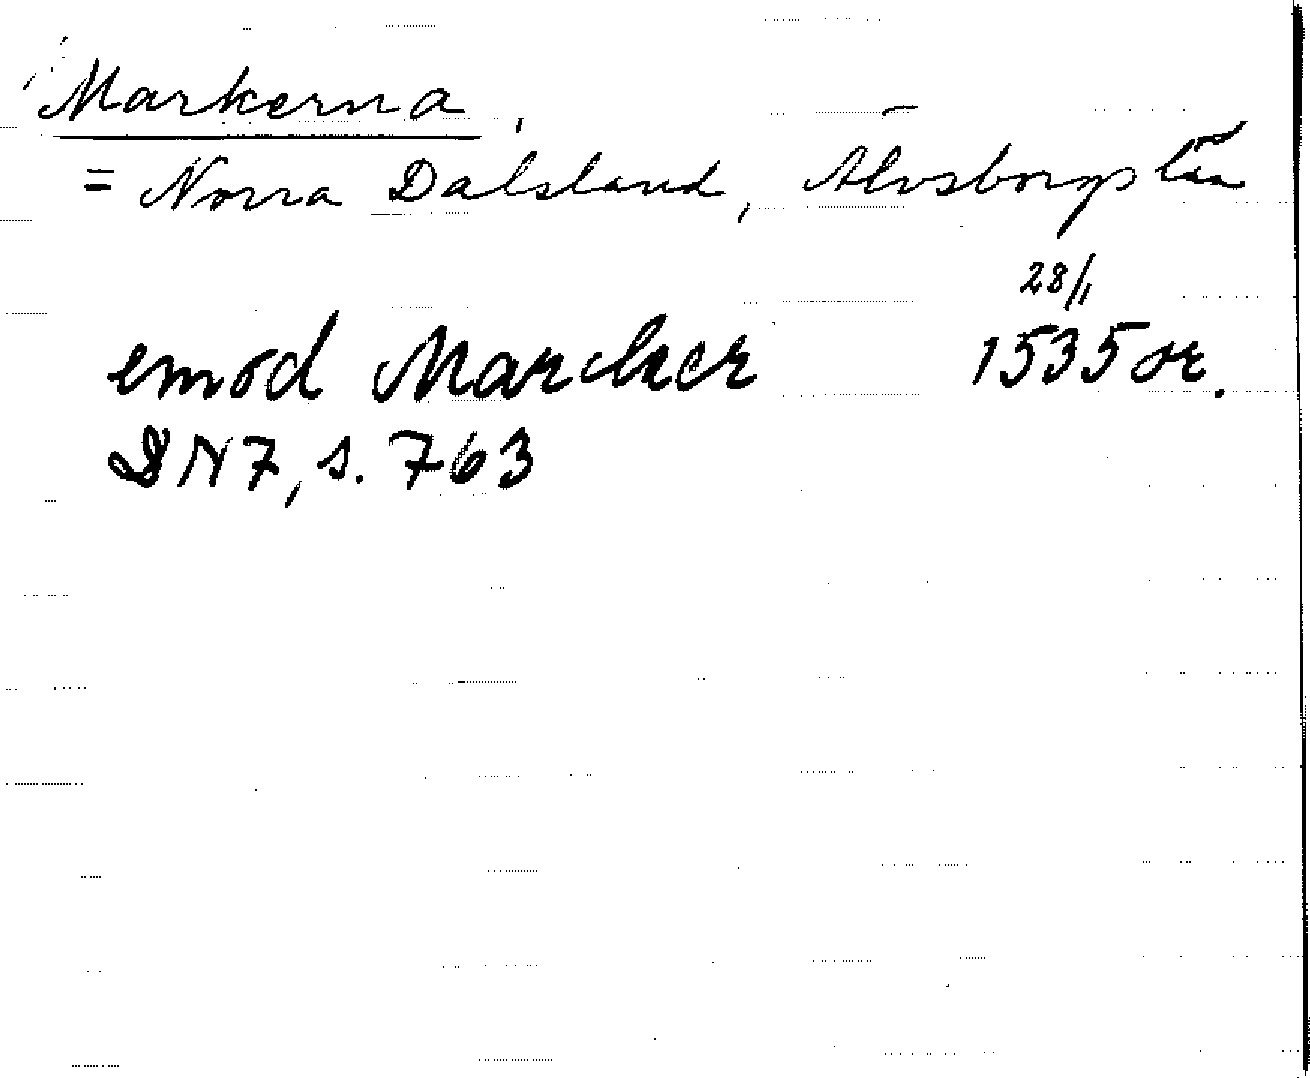 Markerna,
= Norra Dalsland, Älvsborgs län
28/1
emod Marcker 1535 or.
DN7, s. 763